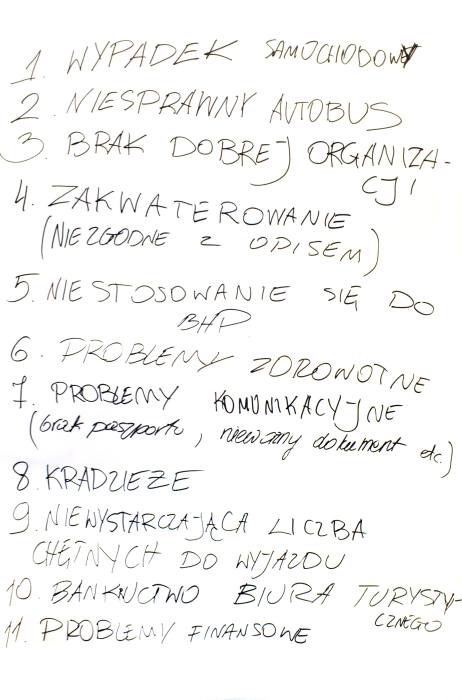 1. WYPADEK SAMOCHODOWY
2. NIESPRAWNY AUTOBUS
3. BRAK DOBREJ ORGANIZA-
CJI
4. ZAKWATEROWANIE
(NIEZGODNE Z OPISEM)
5. NIESTOSOWANIE SIĘ DO
BHP
6. PROBLEMY ZDROWOTNE
7. PROBLEMY KOMUNIKACYJNE
(brak paszportu, nieważny dokument etc.)
8. KRADZIEŻE
9. NIEWYSTARCZAJĄCA LICZBA
CHĘTNYCH DO WYJAZDU
10. BANKRUCTWO BIURA TURYSTY-
CZNEGO
11. PROBLEMY FINANSOWE